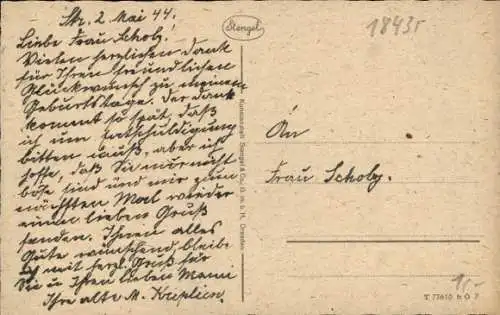 Str. 2. Mai 44.
Liebe Frau Scholz!
Vielen herzlichen Dank
für Ihren freundlichen
Glückwunsch zu meinem
Geburtstage. Der Dank
kommt so spät, daß
ich um Entschuldigung
bitten muß, aber ich
hoffe, daß Sie mir nicht
böse sind und mir zum
nächsten Mal wieder
einen lieben Gruß
senden. Ihnen alles
Gute wünschend, bleibe
ich mit herzl. Gruß für
Sie u. Ihren lieben Mann
Ihre alte M.
Stengel
18435
Kunstanstalt Stengel & Co., G. m. b. H., Dresden
An
Frau Scholz.
1,-
T 77610 b O